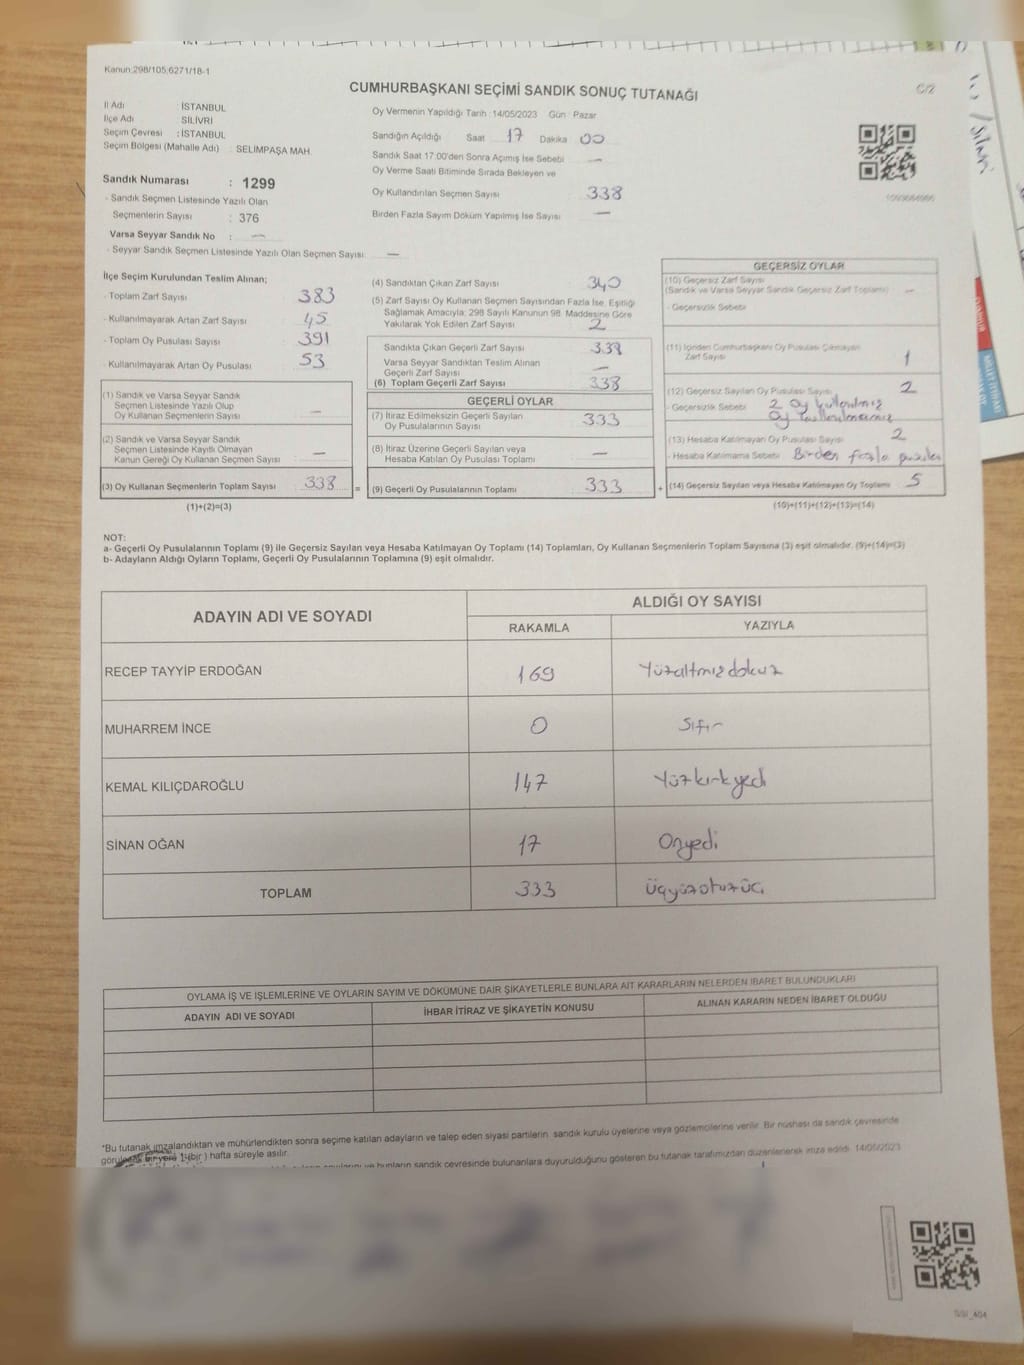 Kanun:298/105,6271/18-1
CUMHURBAŞKANI SEÇİMİ SANDIK SONUÇ TUTANAĞI
C/2
İl Adı : İSTANBUL
İlçe Adı SİLİVRİ
Seçim Çevresi : İSTANBUL
Seçim Bölgesi (Mahalle Adı) : SELİMPAŞA MAH.
Sandık Numarası : 1299
- Sandık Seçmen Listesinde Yazılı Olan
Seçmenlerin Sayısı : 376
Varsa Seyyar Sandık No : —
- Seyyar Sandık Seçmen Listesinde Yazılı Olan Seçmen Sayısı —
Oy Vermenin Yapıldığı Tarih : 14/05/2023 Gün : Pazar
Sandığın Açıldığı Saat 17 Dakika 00
Sandık Saat 17:00'den Sonra Açımış İse Sebebi —
Oy Verme Saati Bitiminde Sırada Bekleyen ve
Oy Kullandırılan Seçmen Sayısı 338
Birden Fazla Sayım Döküm Yapılmış İse Sayısı —
İlçe Seçim Kurulundan Teslim Alınan;
- Toplam Zarf Sayısı 383
- Kullanılmayarak Artan Zarf Sayısı 45
- Toplam Oy Pusulası Sayısı 391
- Kullanılmayarak Artan Oy Pusulası 53
(1) Sandık ve Varsa Seyyar Sandık
Seçmen Listesinde Yazılı Olup
Oy Kullanan Seçmenlerin Sayısı —
(2) Sandık ve Varsa Seyyar Sandık
Seçmen Listesinde Kayıtlı Olmayan
Kanun Gereği Oy Kullanan Seçmen Sayısı —
(3) Oy Kullanan Seçmenlerin Toplam Sayısı 338 =
(1)+(2)=(3)
(4) Sandıktan Çıkan Zarf Sayısı 340
(5) Zarf Sayısı Oy Kullanan Seçmen Sayısından Fazla İse, Eşitliği
Sağlamak Amacıyla; 298 Sayılı Kanunun 98. Maddesine Göre
Yakılarak Yok Edilen Zarf Sayısı 2
Sandıkta Çıkan Geçerli Zarf Sayısı 338
Varsa Seyyar Sandıktan Teslim Alınan
Geçerli Zarf Sayısı —
(6) Toplam Geçerli Zarf Sayısı 338
GEÇERLİ OYLAR
(7) İtiraz Edilmeksizin Geçerli Sayılan
Oy Pusulalarının Sayısı 333
(8) İtiraz Üzerine Geçerli Sayılan veya
Hesaba Katılan Oy Pusulası Toplamı —
(9) Geçerli Oy Pusulalarının Toplamı 333 +
GEÇERSİZ OYLAR
(10) Geçersiz Zarf Sayısı
(Sandık ve Varsa Seyyar Sandık Geçersiz Zarf Toplamı) —
- Geçersizlik Sebebi
(11) İçinden Cumhurbaşkanı Oy Pusulası Çıkmayan
Zarf Sayısı 1
(12) Geçersiz Sayılan Oy Pusulası Sayısı 2
- Geçersizlik Sebebi 2 oy kullanılmış
oy kullanılmamış
(13) Hesaba Katılmayan Oy Pusulası Sayısı 2
- Hesaba Katılmama Sebebi Birden fazla pusula
(14) Geçersiz Sayılan veya Hesaba Katılmayan Oy Toplamı 5
(10)+(11)+(12)+(13)=(14)
NOT:
a- Geçerli Oy Pusulalarının Toplamı (9) ile Geçersiz Sayılan veya Hesaba Katılmayan Oy Toplamı (14) Toplamları, Oy Kullanan Seçmenlerin Toplam Sayısına (3) eşit olmalıdır. (9)+(14)=(3)
b- Adayların Aldığı Oyların Toplamı, Geçerli Oy Pusulalarının Toplamına (9) eşit olmalıdır.
ADAYIN ADI VE SOYADI
ALDIĞI OY SAYISI
RAKAMLA YAZIYLA
RECEP TAYYİP ERDOĞAN 169 Yüzaltmışdokuz
MUHARREM İNCE 0 Sıfır
KEMAL KILIÇDAROĞLU 147 Yüzkırkyedi
SİNAN OĞAN 17 Onyedi
TOPLAM 333 Üçyüzotuzüç
OYLAMA İŞ VE İŞLEMLERİNE VE OYLARIN SAYIM VE DÖKÜMÜNE DAİR ŞİKAYETLERLE BUNLARA AİT KARARLARIN NELERDEN İBARET BULUNDUKLARI
ADAYIN ADI VE SOYADI İHBAR İTİRAZ VE ŞİKAYETİN KONUSU ALINAN KARARIN NEDEN İBARET OLDUĞU
*Bu tutanak imzalandıktan ve mühürlendikten sonra seçime katılan adayların ve talep eden siyasi partilerin sandık kurulu üyelerine veya gözlemcilerine verilir. Bir nüshası da sandık çevresinde
bir yere 1 (bir) hafta süreyle asılır.
sandık çevresinde bulunanlara duyurulduğunu gösteren bu tutanak tarafımızdan düzenlenerek imza edildi. 14/05/2023